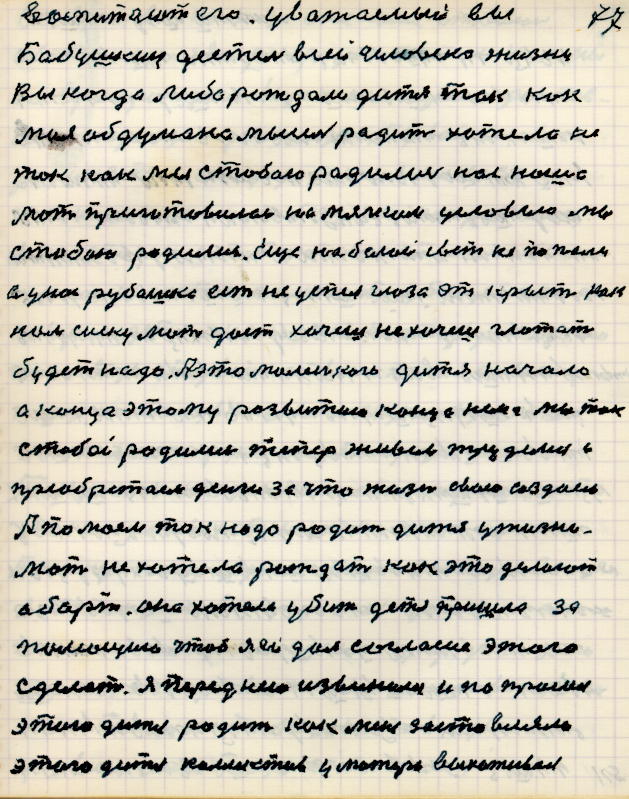 воспитают его. уважаемый вы 77
Бабушки дестея всей человено жизни
Вы когда либо рождали дитя так как
моя обдумана мыся радит хотела не
ток как мы стобою радилися нас наша
мот приготовилас на мягком условяю мы
стобою родилис. Еще на белой свет не попали
а у нас рубашка ест не успел глоза от крыт как
нам соску мот дает хочеш не хочеш глотат
будет надо. А это маленького дитя начало
а конца этому развитию конца нема мы так
стобой родилис тепер живем трудимся и
приобретаем денги за что жизн свою создаем
А по моем ток надо родит дитя у жизне.
мот не хотела рождат как это делают
аборт. она хотела убит детя пришла за
помощию чтоб я ей дал согласие этого
сделат. я перед нею извинился и по просил
этого дитя родит как мне заставляло
этого дитя коллектив у матери выхаживал